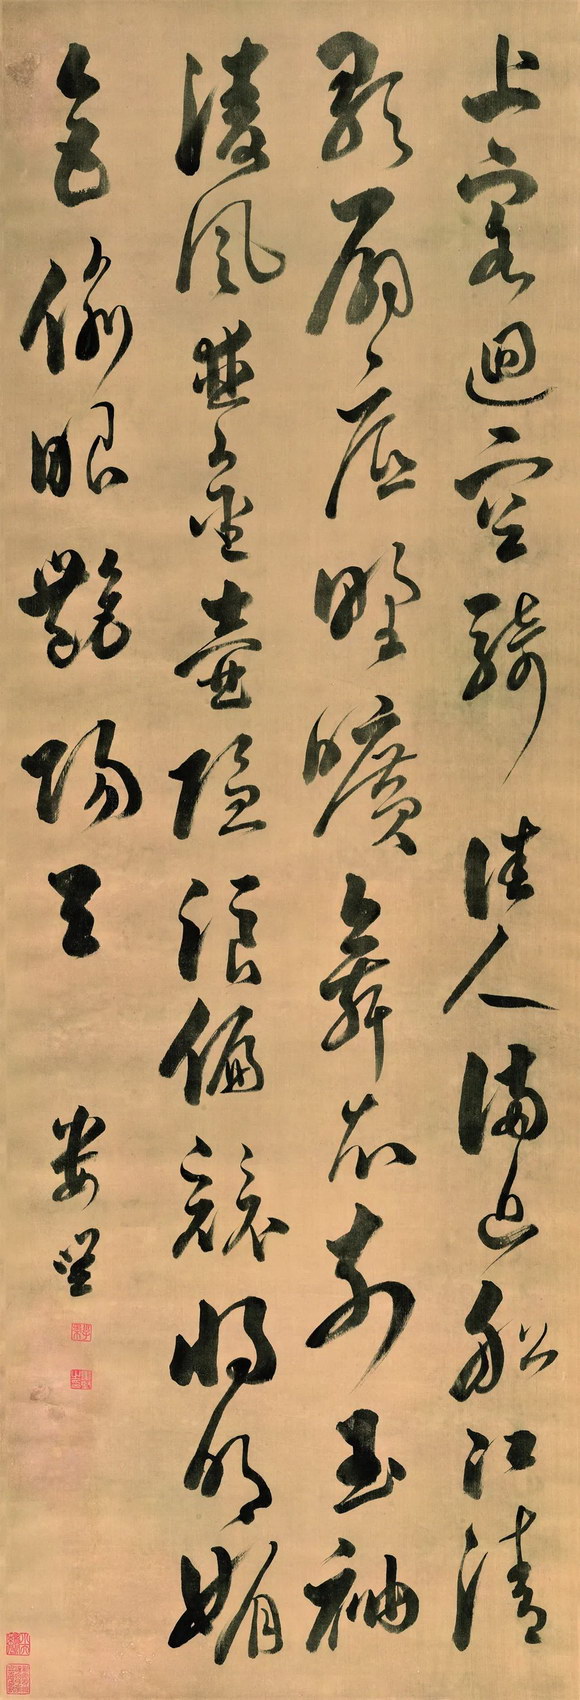 上客迴空騎佳人滿近船江清
歌扇底野曠舞衣前玉袖
凌風並金壺隱浪偏競將明媚
色偷眼艷陽天
婁堅